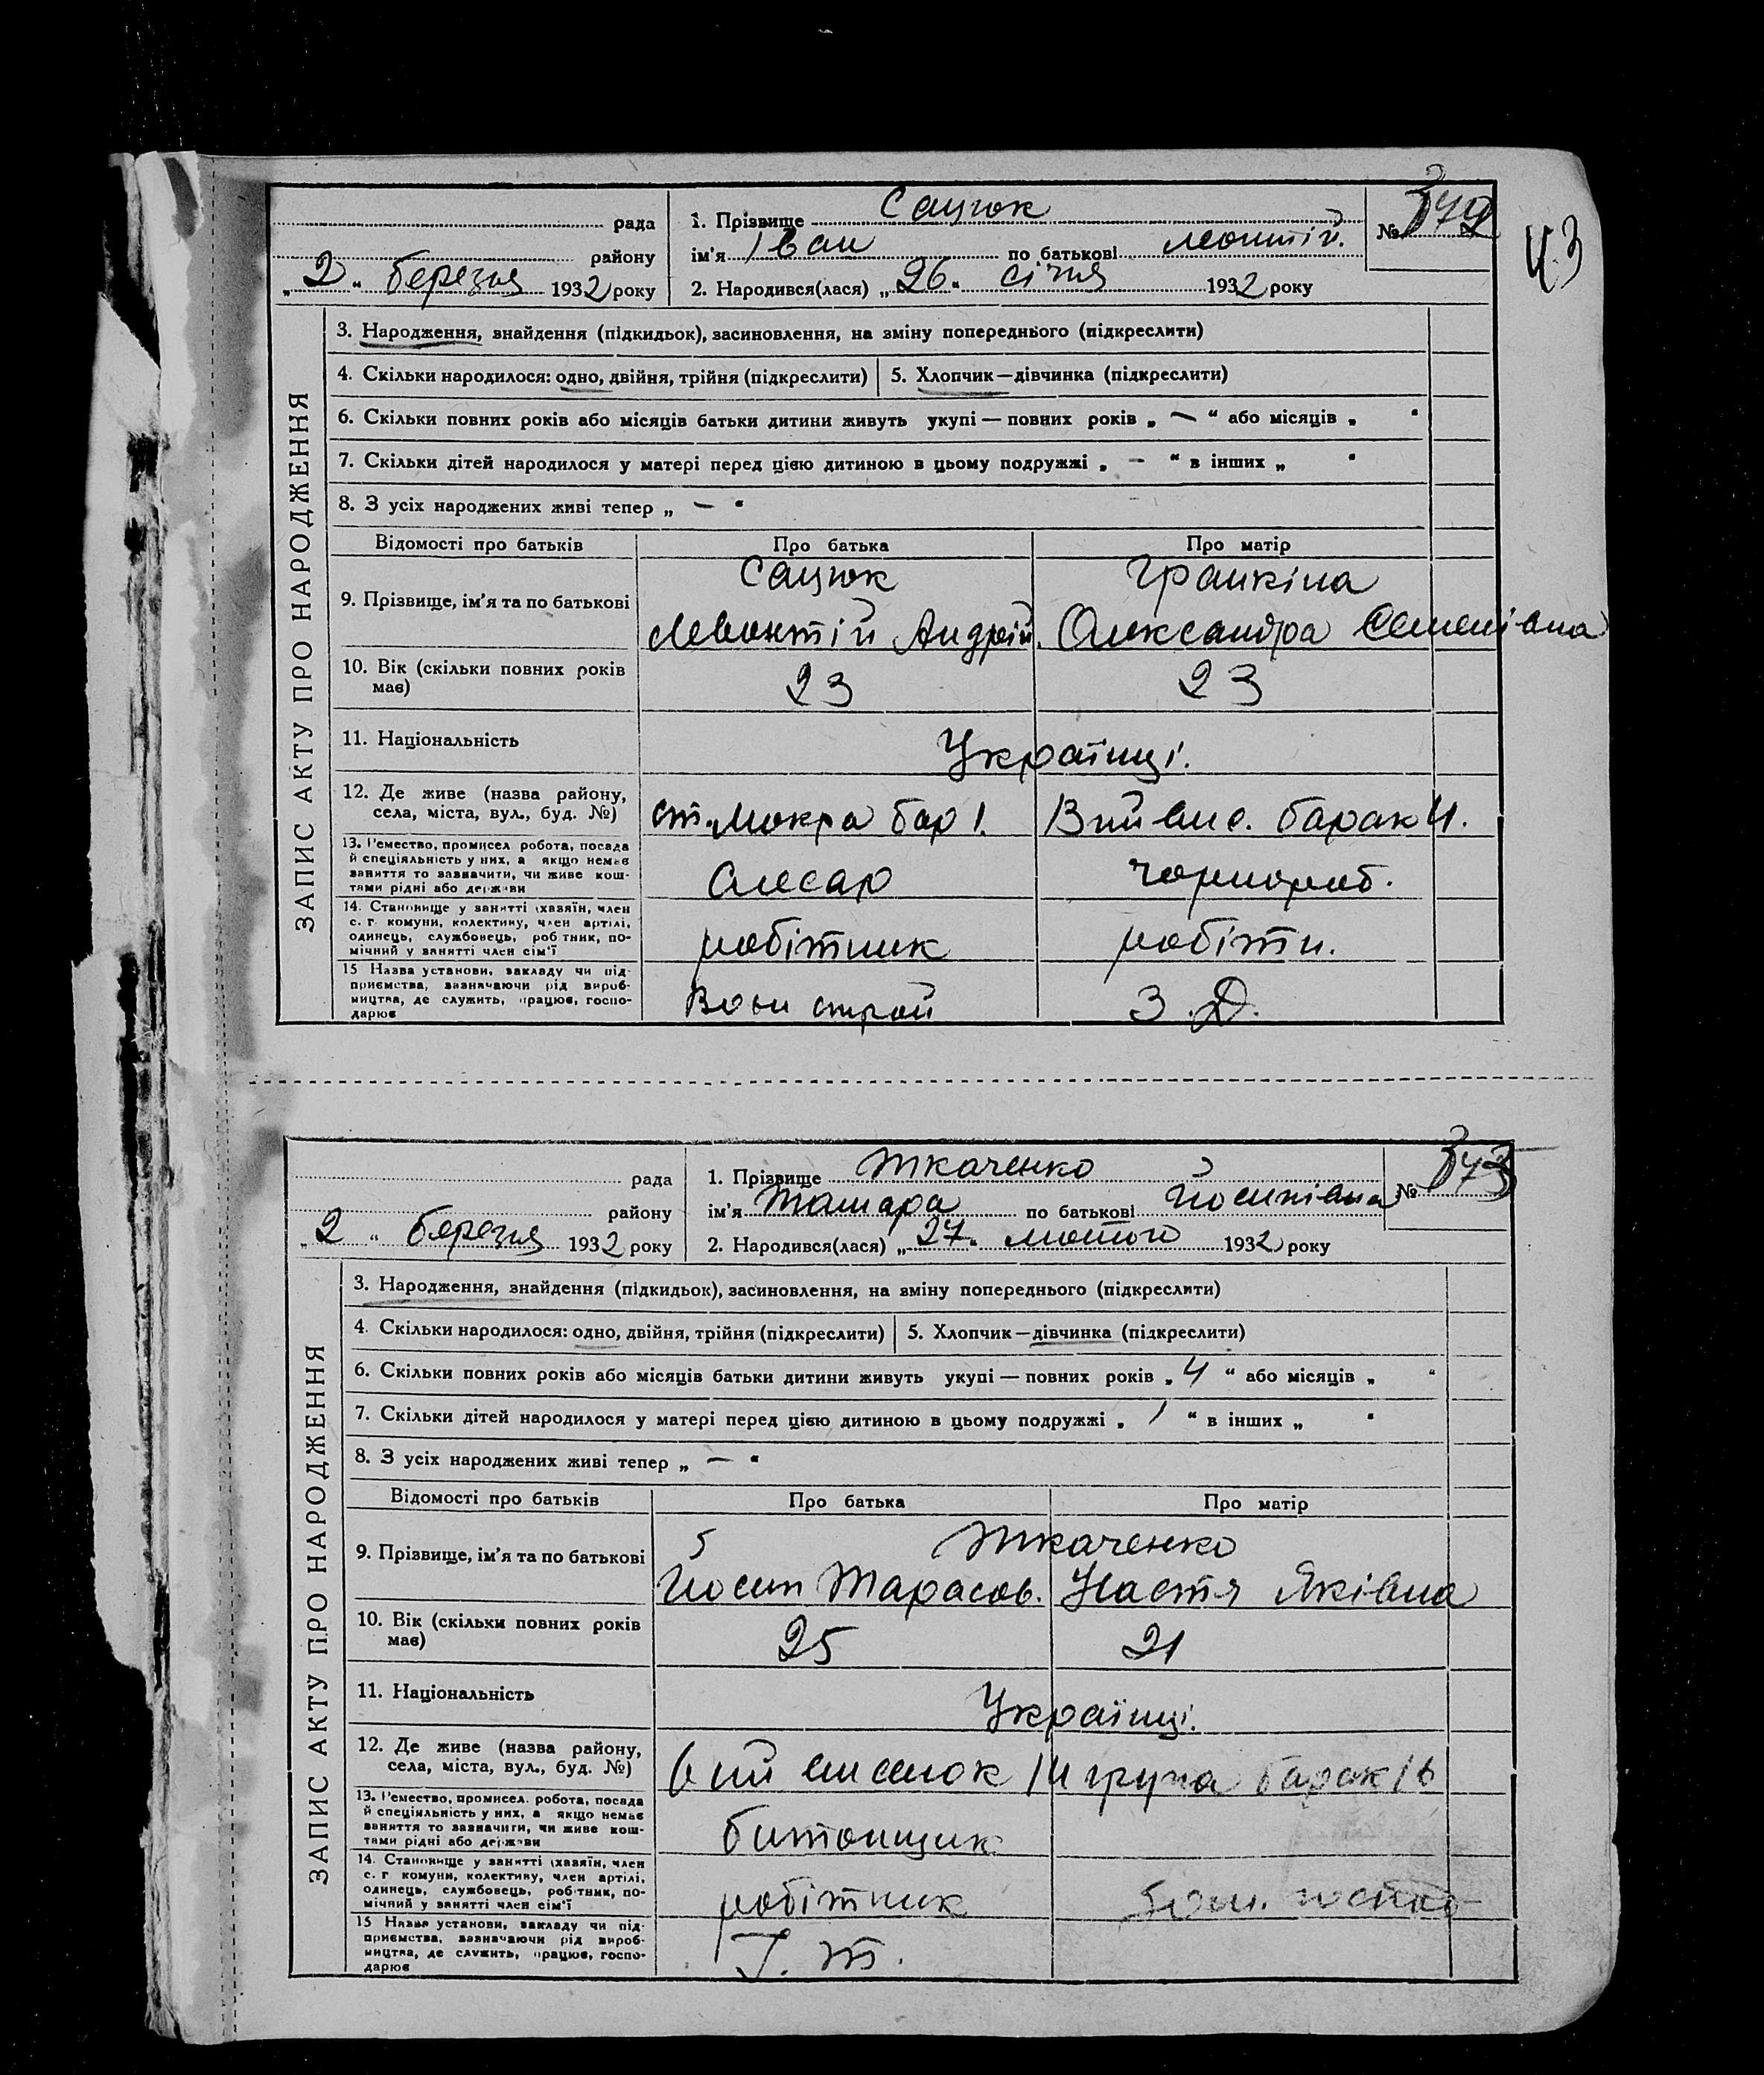 рада
району
„2“ березня 1932 року
1. Прізвище Сацюк
ім'я Іван по батькові Леонтій.
2. Народився(лася) „26“ січня 1932 року
№ 372
43
ЗАПИС АКТУ ПРО НАРОДЖЕННЯ
3. Народження, знайдення (підкидьок), засиновлення, на зміну попереднього (підкреслити)
4. Скільки народилося: одно, двійня, трійня (підкреслити) 5. Хлопчик—дівчинка (підкреслити)
6. Скільки повних років або місяців батьки дитини живуть укупі — повних років „ — “ або місяців „ “
7. Скільки дітей народилося у матері перед цією дитиною в цьому подружжі „ — “ в інших „ “
8. З усіх народжених живі тепер „ — “
Відомості про батьків Про батька Про матір
Сацюк Гранкіна
9. Прізвище, ім'я та по батькові
Левонтій Андрій. Олександра Семенівна
10. Вік (скільки повних років має) 23 23
11. Національність Українці.
12. Де живе (назва району, села, міста, вул., буд. №)
ст. Мокра бар 1. барак 4.
13. Ремество, промисел робота, посада й спеціяльність у них, а якщо немає заняття то зазначити, чи живе коштами рідні або держави
Слесар чорнороб.
14. Становище у занятті (хазяїн, член с.-г. комуни, колективу, член артілі, одинець, службовець, робітник, помічний у занятті член сім'ї
робітник робітн.
15 Назва установи, закладу чи підприємства, зазначаючи рід виробництва, де служить, працює, господарює
строй З. Д.
рада
району
„2“ березня 1932 року
1. Прізвище Ткаченко
ім'я Тамара по батькові Йосипівна
2. Народився(лася) „27“ лютого 1932 року
№ 373
ЗАПИС АКТУ ПРО НАРОДЖЕННЯ
3. Народження, знайдення (підкидьок), засиновлення, на зміну попереднього (підкреслити)
4. Скільки народилося: одно, двійня, трійня (підкреслити) 5. Хлопчик—дівчинка (підкреслити)
6. Скільки повних років або місяців батьки дитини живуть укупі — повних років „ 4 “ або місяців „ “
7. Скільки дітей народилося у матері перед цією дитиною в цьому подружжі „ 1 “ в інших „ “
8. З усіх народжених живі тепер „ — “
Відомості про батьків Про батька Про матір
Ткаченко
9. Прізвище, ім'я та по батькові
Йосип Тарасов. Настя Яківна
10. Вік (скільки повних років має) 25 21
11. Національність Українці.
12. Де живе (назва району, села, міста, вул., буд. №)
6 ий виселок 14 група барак 16
13. Ремество, промисел, робота, посада й спеціяльність у них, а якщо немає заняття то зазначити, чи живе коштами рідні або держави
битонщик
14. Становище у занятті (хазяїн, член с. г комуни, колективу, член артілі, одинець, службовець, робітник, помічний у занятті член сім'ї
робітник дом. господ
15 Назва установи, закладу чи підприємства, зазначаючи рід виробництва, де служить, працює, господарює